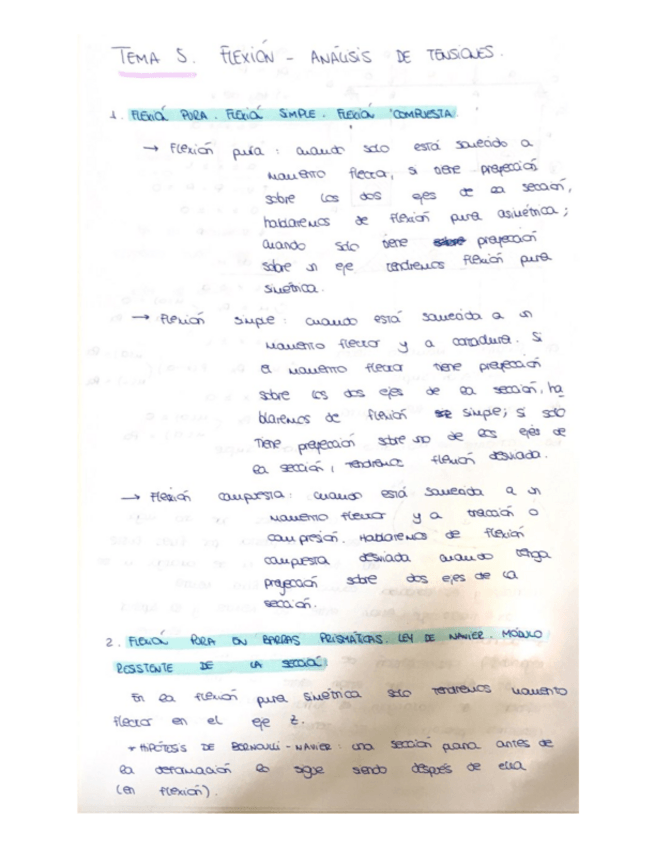 TEMA 5. FLEXIÓN - ANÁLISIS DE TENSIONES.
1. FLEXIÓN PURA. FLEXIÓN SIMPLE. FLEXIÓN COMPUESTA.
→ Flexión pura: cuando solo está sometido a
momento flector, si tiene proyección
sobre los dos ejes de la sección,
hablaremos de flexión pura asimétrica;
cuando sólo tiene proyección
sobre un eje tendremos flexión pura
simétrica.
→ Flexión simple: cuando está sometida a un
momento flector y a cortadura. Si
el momento flector tiene proyección
sobre los dos ejes de la sección, ha
blaremos de flexión simple; si solo
tiene proyección sobre uno de los ejes de
la sección, tendremos flexión desviada.
→ Flexión compuesta: cuando está sometida a un
momento flector y a tracción o
compresión. Hablaremos de flexión
compuesta desviada cuando tenga
proyección sobre dos ejes de la
sección.
2. FLEXIÓN PURA EN BARRAS PRISMÁTICAS. LEY DE NAVIER. MÓDULO
RESISTENTE DE LA SECCIÓN.
En la flexión pura simétrica sólo tendremos momento
flector en el eje z.
* HIPÓTESIS DE BERNOULLI-NAVIER: una sección plana antes de
la deformación lo sigue siendo después de ella
(en flexión).